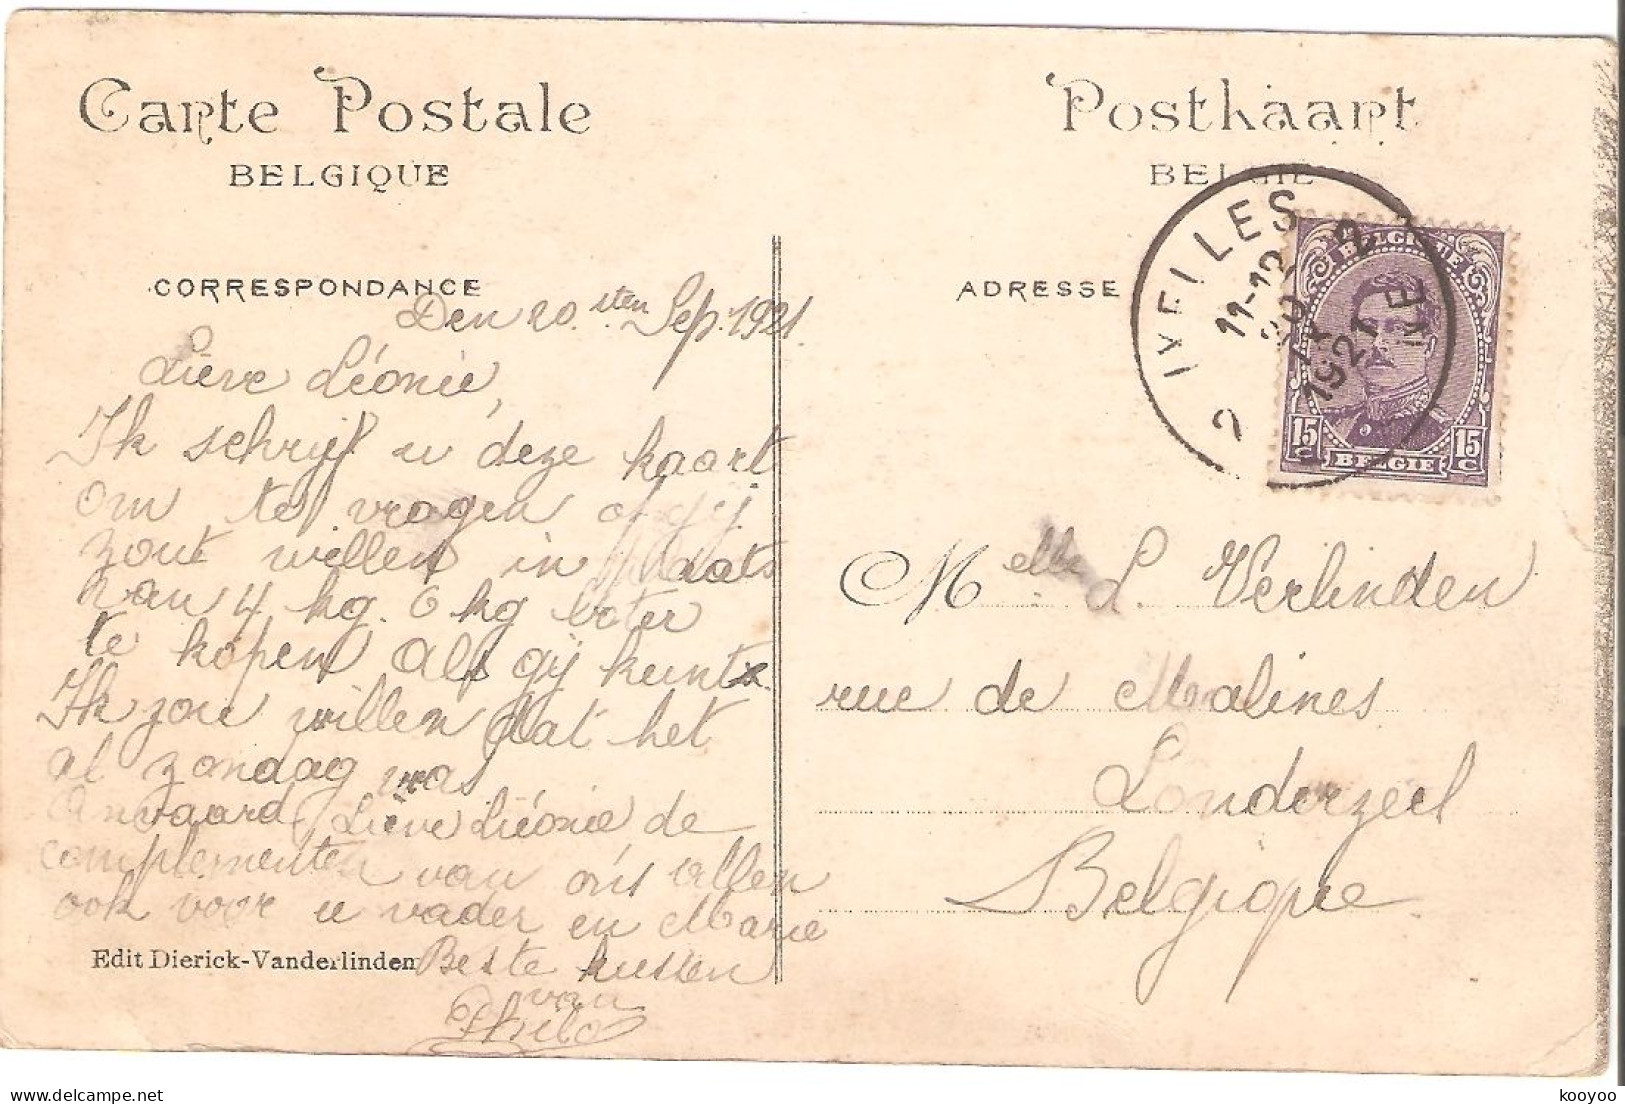 Carte Postale
BELGIQUE
Postkaart
BELGIE
CORRESPONDANCE
ADRESSE
Den 20.sten Sep. 1921.
Lieve Léonie,
Ik schrijf u deze kaart
om te vragen of gij
zout willen in plaats
van 4 kg. 6 kg boter
te kopen als gij kunt
Ik zou willen dat het
al zondag was
Anvaard Lieve Léonie de
complementen van ons allen
ook voor u vader en Marie
Beste kussen
van
Philo
Edit Dierick-Vanderlinden
IXELLES
11-12
20
1921
2
BELGIQUE
15 C
15 C
BELGIE
Melle L. Verlinden
rue de Malines
Londerzeel
Belgique
kooyoo